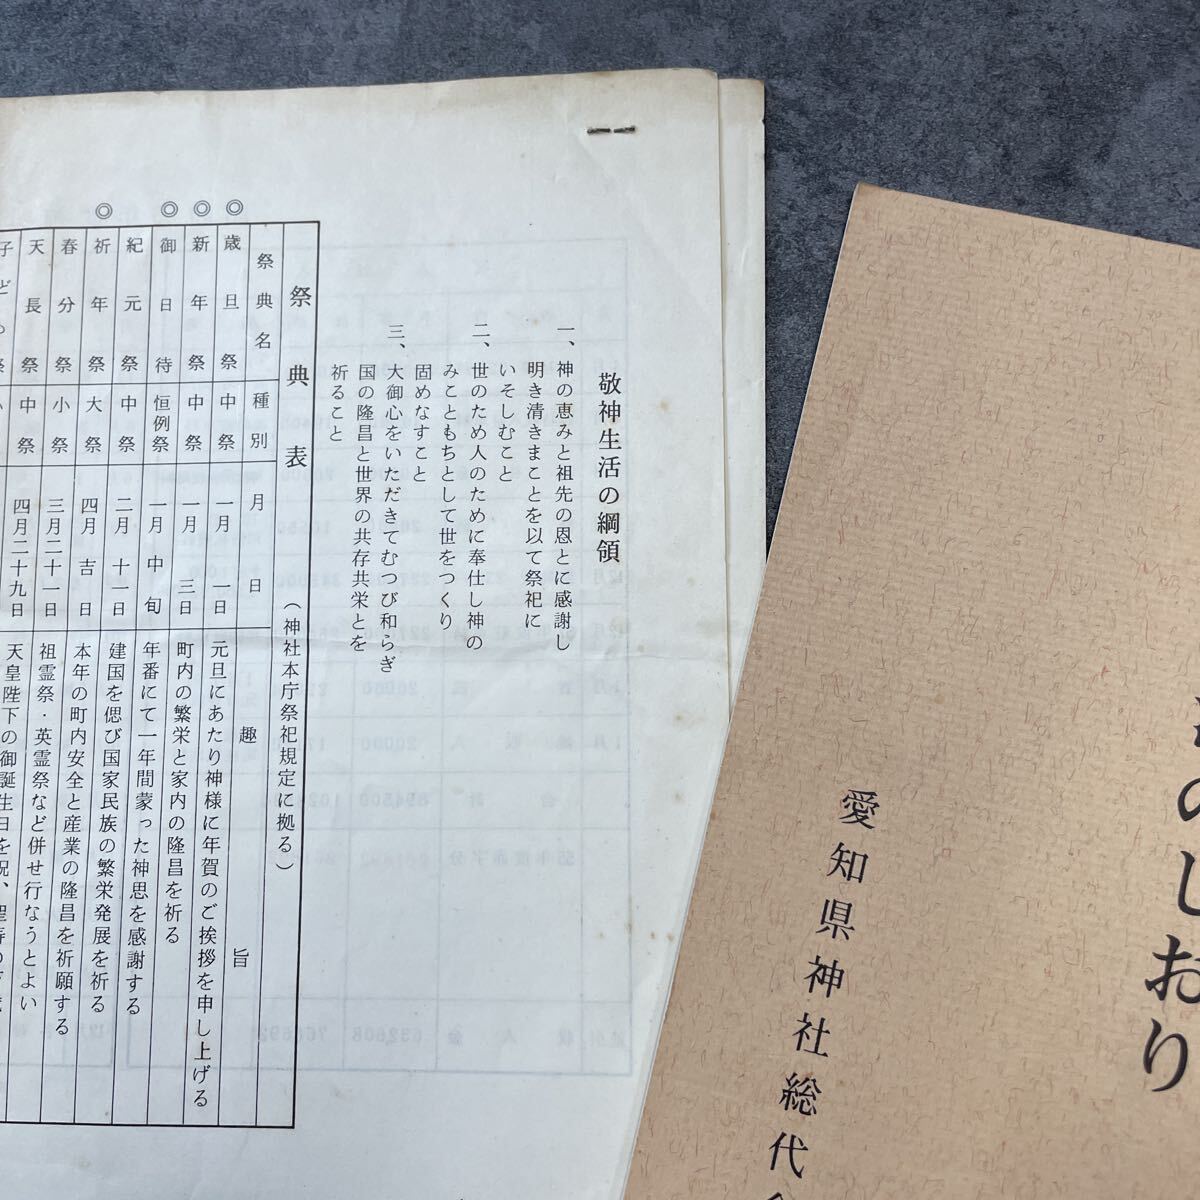 敬神生活の綱領
一、神の恵みと祖先の恩とに感謝し
明き清きまことを以て祭祀に
いそしむこと
二、世のため人のために奉仕し神の
みこともちとして世をつくり
固めなすこと
三、大御心をいただきてむつび和らぎ
国の隆昌と世界の共存共栄とを
祈ること
祭典表（神社本庁祭祀規定に拠る）
祭典名 種別 月日 趣旨
◎ 歳旦祭 中祭 一月一日 元旦にあたり神様に年賀のご挨拶を申し上げる
◎ 新年祭 中祭 一月三日 町内の繁栄と家内の隆昌を祈る
◎ 御日待 恒例祭 一月中旬 年番にて一年間蒙った神思を感謝する
紀元祭 中祭 二月十一日 建国を偲び国家民族の繁栄発展を祈る
◎ 祈年祭 大祭 四月吉日 本年の町内安全と産業の隆昌を祈願する
春分祭 小祭 三月二十一日 祖霊祭・英霊祭など併せ行なうとよい
天長祭 中祭 四月二十九日 天皇陛下の御誕生日を祝、聖寿の
子ども祭
のしおり
愛知県神社総代